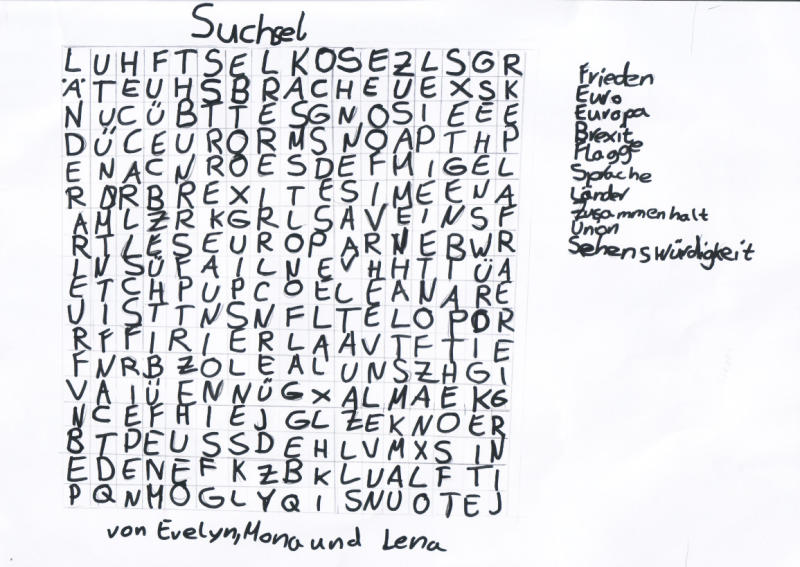 Suchsel
L U H F T S E L K O S E Z L S G R
Ä T E U H S B R A C H E U E X S K
N U C Ü B T T E S G N O S I E E E
D Ü C E U R O R M S N O A P T H P
E N A C N R O E S D E F M I G E L
R D R B R E X I T E S I M E E N A
A M L Z R K G R L S A V E I N S F
R T L E S E U R O P A R N E B W R
L N S Ü F A I L N E V H H T T Ü A
E T C H P U P C O E L E A N A R E
U I S T T N S N F L T E L O P D R
R F F I R I E R L A A V T F T I E
F N R B Z O L E A L U N S Z H G I
V A I Ü E N N Ü G X A L M A E K G
N C E F H I E J G L Z E K N O E R
B T P E U S S D E H L V M X S I N
E D E N E F K Z B K L U A L F T I
P Q N M O G L Y Q I S N U O T E J
von Evelyn, Mona und Lena
Frieden
Euro
Europa
Brexit
Flagge
Sprache
Länder
Zusammenhalt
Union
Sehenswürdigkeit